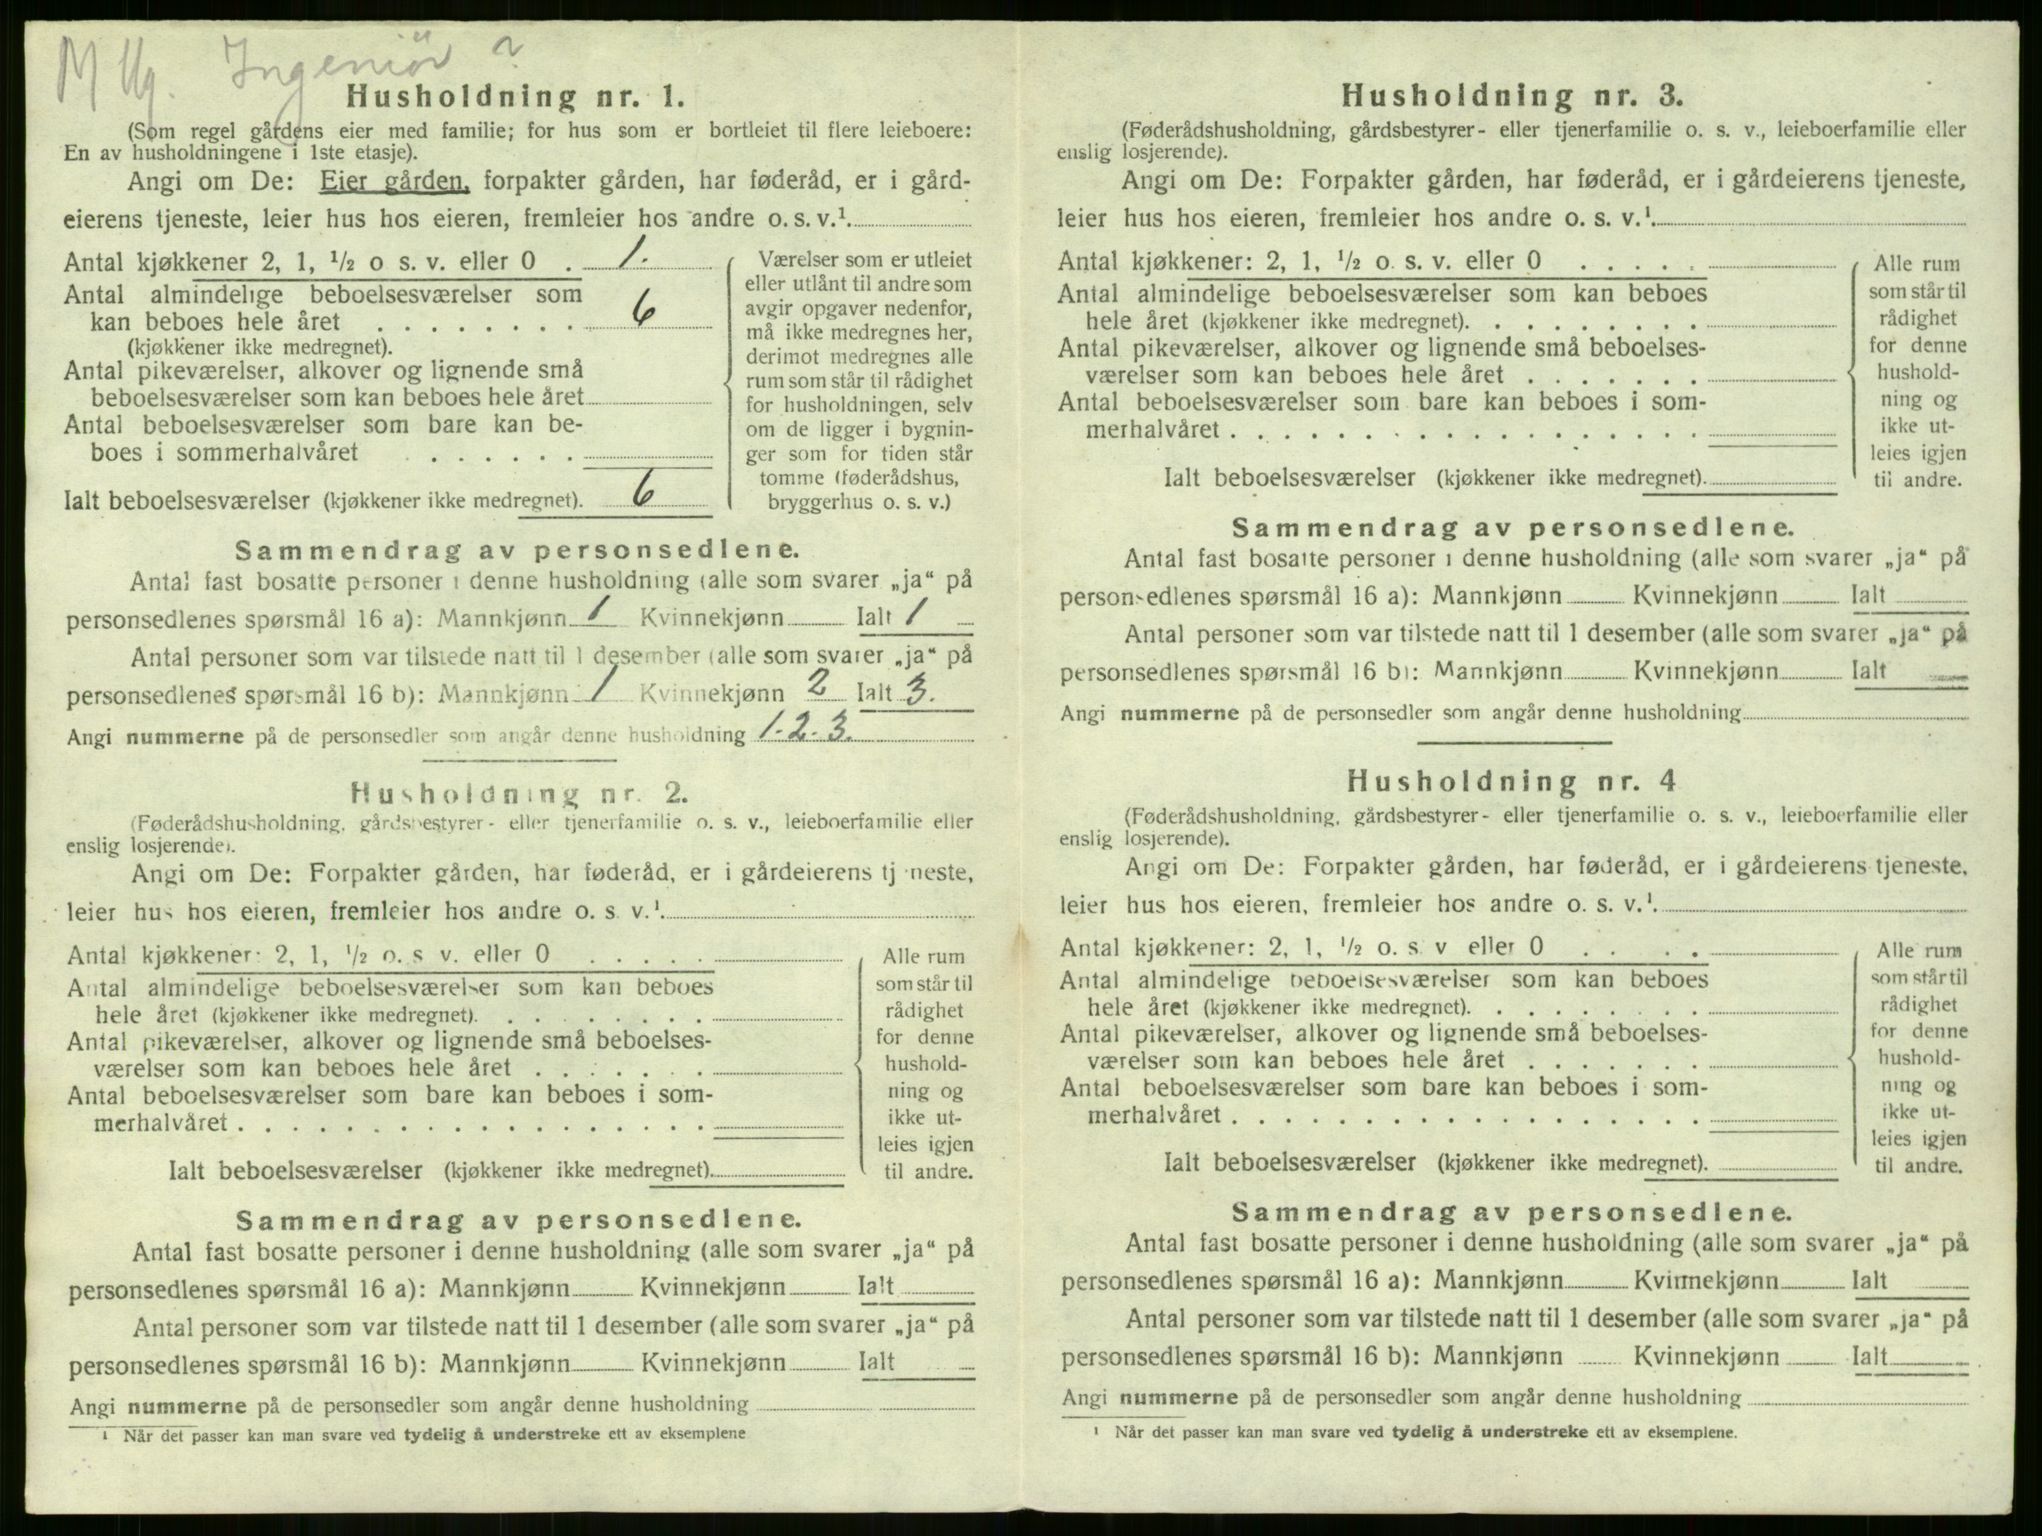 Ingeniör ?
Husholdning nr. 1.
(Som regel gårdens eier med familie; for hus som er bortleiet til flere leieboere:
En av husholdningene i 1ste etasje).
Angi om De: Eier gården, forpakter gården, har føderåd, er i gård-
eierens tjeneste, leier hus hos eieren, fremleier hos andre o. s. v.¹
Antal kjøkkener 2, 1, ½ o s. v. eller 0 . 1.
Antal almindelige beboelsesværelser som
kan beboes hele året . . . . . . . . 6
(kjøkkener ikke medregnet).
Antal pikeværelser, alkover og lignende små
beboelsesværelser som kan beboes hele året
Antal beboelsesværelser som bare kan be-
boes i sommerhalvåret . . . . . .
Ialt beboelsesværelser (kjøkkener ikke medregnet). 6
Værelser som er utleiet
eller utlånt til andre som
avgir opgaver nedenfor,
må ikke medregnes her,
derimot medregnes alle
rum som står til rådighet
for husholdningen, selv
om de ligger i bygnin-
ger som for tiden står
tomme (føderådshus,
bryggerhus o. s. v.)
Sammendrag av personsedlene.
Antal fast bosatte personer i denne husholdning (alle som svarer „ja“ på
personsedlenes spørsmål 16 a): Mannkjønn 1 Kvinnekjønn Ialt 1
Antal personer som var tilstede natt til 1 desember (alle som svarer „ja“ på
personsedlenes spørsmål 16 b): Mannkjønn 1 Kvinnekjønn 2 Ialt 3.
Angi nummerne på de personsedler som angår denne husholdning 1. 2. 3.
Husholdning nr. 2.
(Føderådshusholdning, gårdsbestyrer- eller tjenerfamilie o. s. v., leieboerfamilie eller
enslig losjerende).
Angi om De: Forpakter gården, har føderåd, er i gårdeierens tj neste,
leier hus hos eieren, fremleier hos andre o. s. v.¹
Antal kjøkkener: 2, 1, ½ o. s v. eller 0 . . . . .
Antal almindelige beboelsesværelser som kan beboes
hele året (kjøkkener ikke medregnet). . . . . . . . .
Antal pikeværelser, alkover og lignende små beboelses-
værelser som kan beboes hele året . . . . . . .
Antal beboelsesværelser som bare kan beboes i som-
merhalvåret . . . . . . . . . . . . . . . . . .
Ialt beboelsesværelser (kjøkkener ikke medregnet).
Alle rum
som står til
rådighet
for denne
hushold-
ning og
ikke ut-
leies igjen
til andre.
Sammendrag av personsedlene.
Antal fast bosatte personer i denne husholdning (alle som svarer „ja“ på
personsedlenes spørsmål 16 a): Mannkjønn Kvinnekjønn Ialt
Antal personer som var tilstede natt til 1 desember (alle som svarer „ja“ på
personsedlenes spørsmål 16 b): Mannkjønn Kvinnekjønn Ialt
Angi nummerne på de personsedler som angår denne husholdning
¹ Når det passer kan man svare ved tydelig å understreke ett av eksemplene
Husholdning nr. 3.
(Føderådshusholdning, gårdsbestyrer- eller tjenerfamilie o. s. v., leieboerfamilie eller
enslig losjerende).
Angi om De: Forpakter gården, har føderåd, er i gårdeierens tjeneste,
leier hus hos eieren, fremleier hos andre o. s. v.¹
Antal kjøkkener: 2, 1, ½ o. s. v. eller 0 . . . . .
Antal almindelige beboelsesværelser som kan beboes
hele året (kjøkkener ikke medregnet). . . . . . . . .
Antal pikeværelser, alkover og lignende små beboelses-
værelser som kan beboes hele året . . . . . . .
Antal beboelsesværelser som bare kan beboes i som-
merhalvåret . . . . . . . . . . . . . . . . . .
Ialt beboelsesværelser (kjøkkener ikke medregnet).
Alle rum
som står til
rådighet
for denne
hushold-
ning og
ikke ut-
leies igjen
til andre.
Sammendrag av personsedlene.
Antal fast bosatte personer i denne husholdning (alle som svarer „ja“ på
personsedlenes spørsmål 16 a): Mannkjønn Kvinnekjønn Ialt
Antal personer som var tilstede natt til 1 desember (alle som svarer „ja“ på
personsedlenes spørsmål 16 b): Mannkjønn Kvinnekjønn Ialt
Angi nummerne på de personsedler som angår denne husholdning
Husholdning nr. 4
(Føderådshusholdning, gårdsbestyrer- eller tjenerfamilie o. s. v., leieboerfamilie eller
enslig losjerende).
Angi om De: Forpakter gården, har føderåd, er i gårdeierens tjeneste,
leier hus hos eieren, fremleier hos andre o. s. v.¹
Antal kjøkkener: 2, 1, ½ o. s. v eller 0 . . . . .
Antal almindelige beboelsesværelser som kan beboes
hele året (kjøkkener ikke medregnet). . . . . . . . .
Antal pikeværelser, alkover og lignende små beboelses-
værelser som kan beboes hele året . . . . . . .
Antal beboelsesværelser som bare kan beboes i som-
merhalvåret . . . . . . . . . . . . . . . . . .
Ialt beboelsesværelser (kjøkkener ikke medregnet).
Alle rum
som står til
rådighet
for denne
hushold-
ning og
ikke ut-
leies igjen
til andre.
Sammendrag av personsedlene.
Antal fast bosatte personer i denne husholdning (alle som svarer „ja“ på
personsedlenes spørsmål 16 a): Mannkjønn Kvinnekjønn Ialt
Antal personer som var tilstede natt til 1 desember (alle som svarer „ja“ på
personsedlenes spørsmål 16 b): Mannkjønn Kvinnekjønn Ialt
Angi nummerne på de personsedler som angår denne husholdning
¹ Når det passer kan man svare ved tydelig å understreke ett av eksemplene.